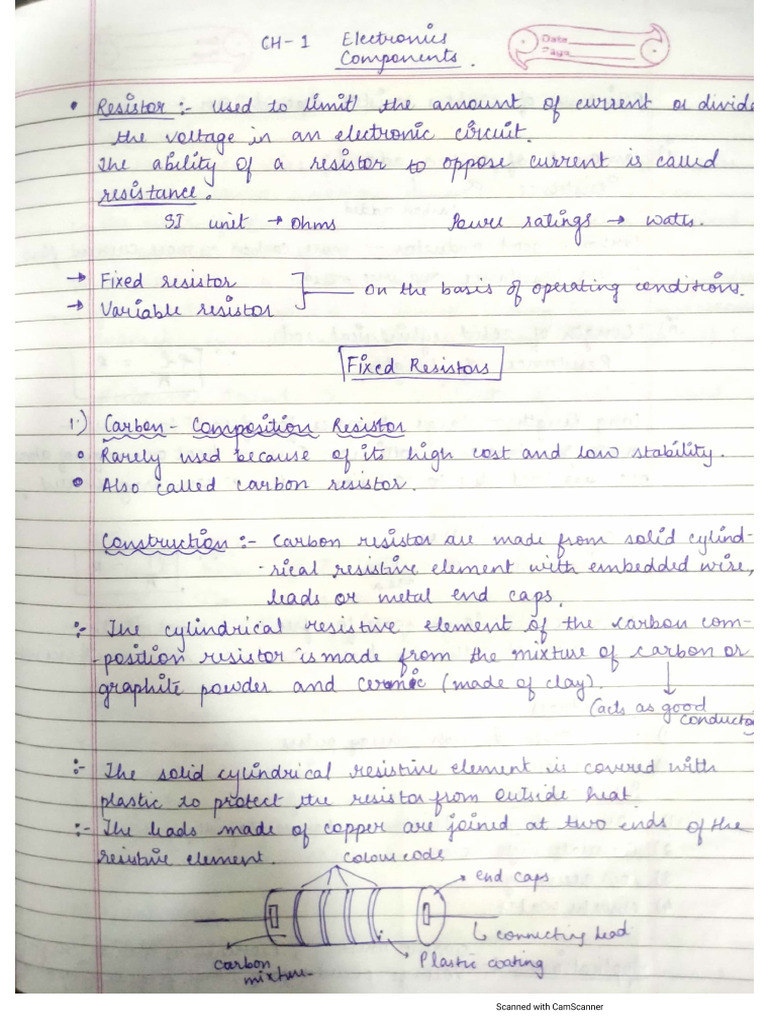 CH-1 Electronics
Components.
Date
Page
• Resistor :- Used to limit the amount of current or divide
the voltage in an electronic circuit.
The ability of a resistor to oppose current is called
resistance.
SI unit → Ohms Power ratings → watts.
→ Fixed resistor
→ Variable resistor
On the basis of operating conditions.
Fixed Resistors
1.) Carbon - Composition Resistor
• Rarely used because of its high cost and low stability.
• Also called carbon resistor.
Construction :- Carbon resistor are made from solid cylind-
-rical resistive element with embedded wire,
leads or metal end caps.
:- The cylindrical resistive element of the carbon com-
-position resistor is made from the mixture of carbon or
graphite powder and ceramic (made of clay).
↓
(acts as good
conductor
:- The solid cylindrical resistive element is covered with
plastic to protect the resistor from outside heat.
:- The leads made of copper are joined at two ends of the
resistive element.
colour code
end caps
connecting lead
Plastic coating
carbon
mixture
Scanned with CamScanner